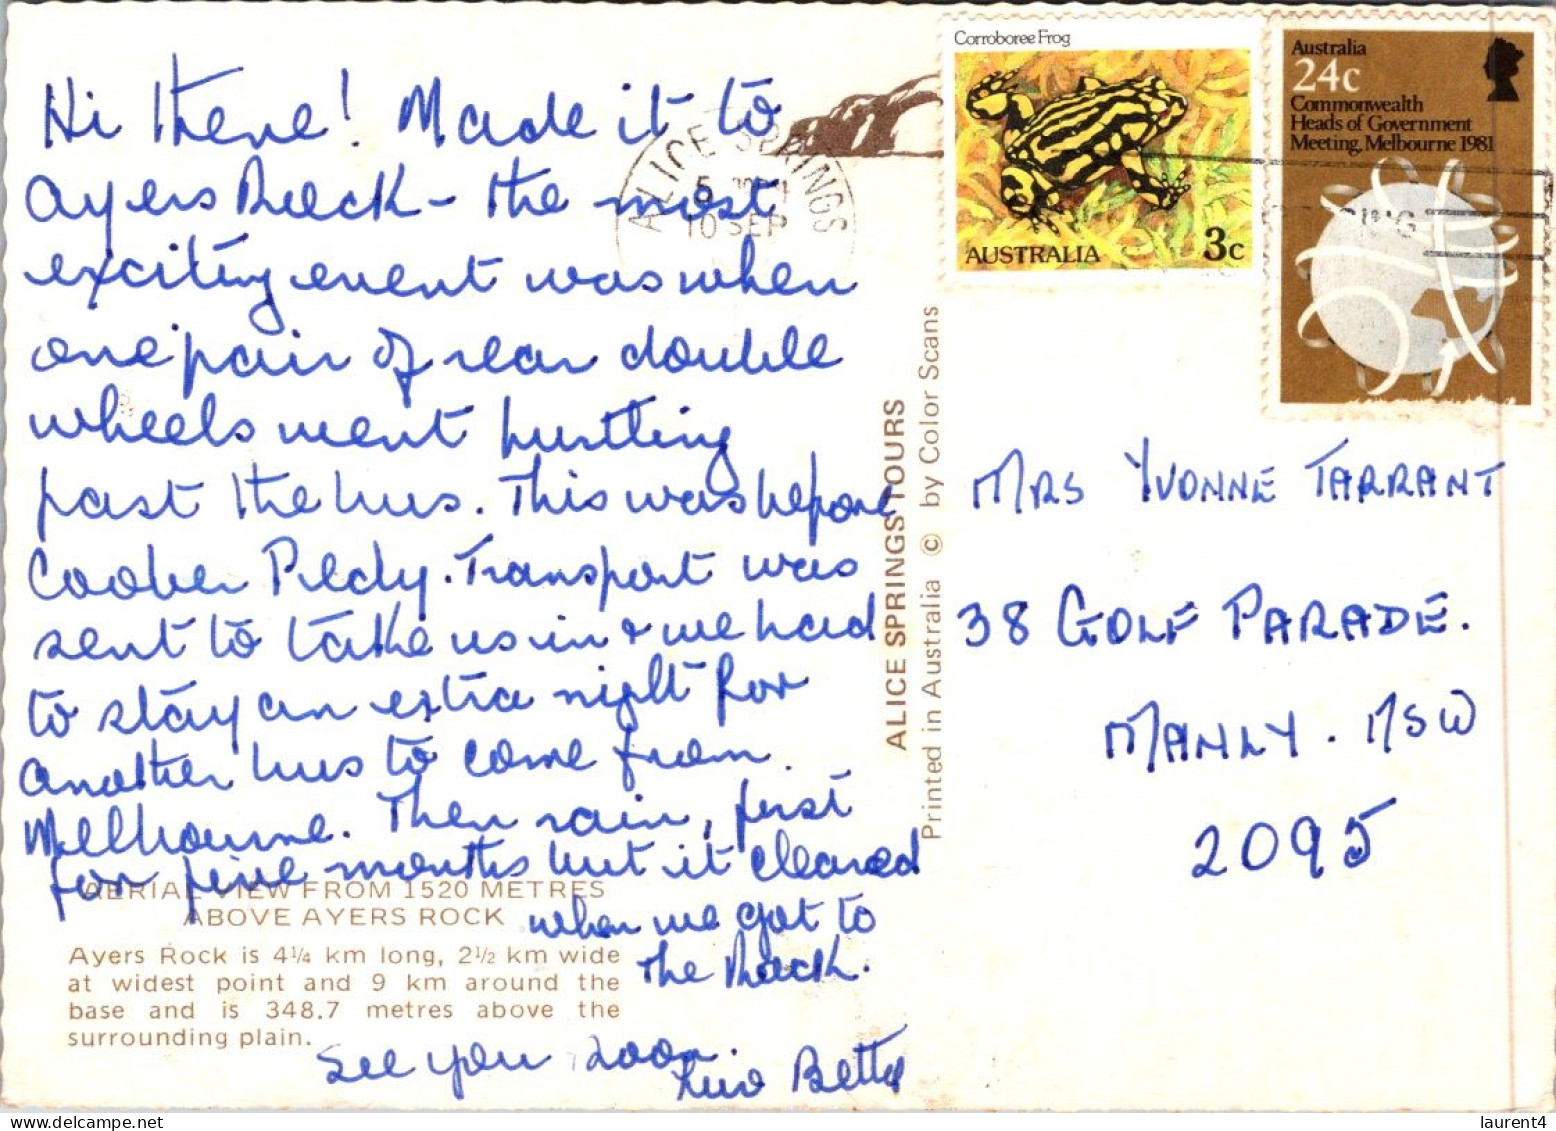 Hi there! Made it to
Ayers Rock - the most
exciting event was when
one pair of rear double
wheels went hurtling
past the bus. This was before
Coober Pedy. Transport was
sent to take us in & we had
to stay an extra night for
another bus to come from
Melbourne. Then rain, first
for five months but it cleared
when we got to
the Rock.
See you soon.
Betty
AERIAL VIEW FROM 1520 METRES
ABOVE AYERS ROCK
Ayers Rock is 4¼ km long, 2½ km wide
at widest point and 9 km around the
base and is 348.7 metres above the
surrounding plain.
ALICE SPRINGS
5
10 SEP
ALICE SPRINGS TOURS
Printed in Australia © by Color Scans
Corroboree Frog
AUSTRALIA 3c
Australia
24c
Commonwealth
Heads of Government
Meeting, Melbourne 1981
MRS YVONNE TARRANT
38 GOLF PARADE.
MANLY. NSW
2095
laurent4